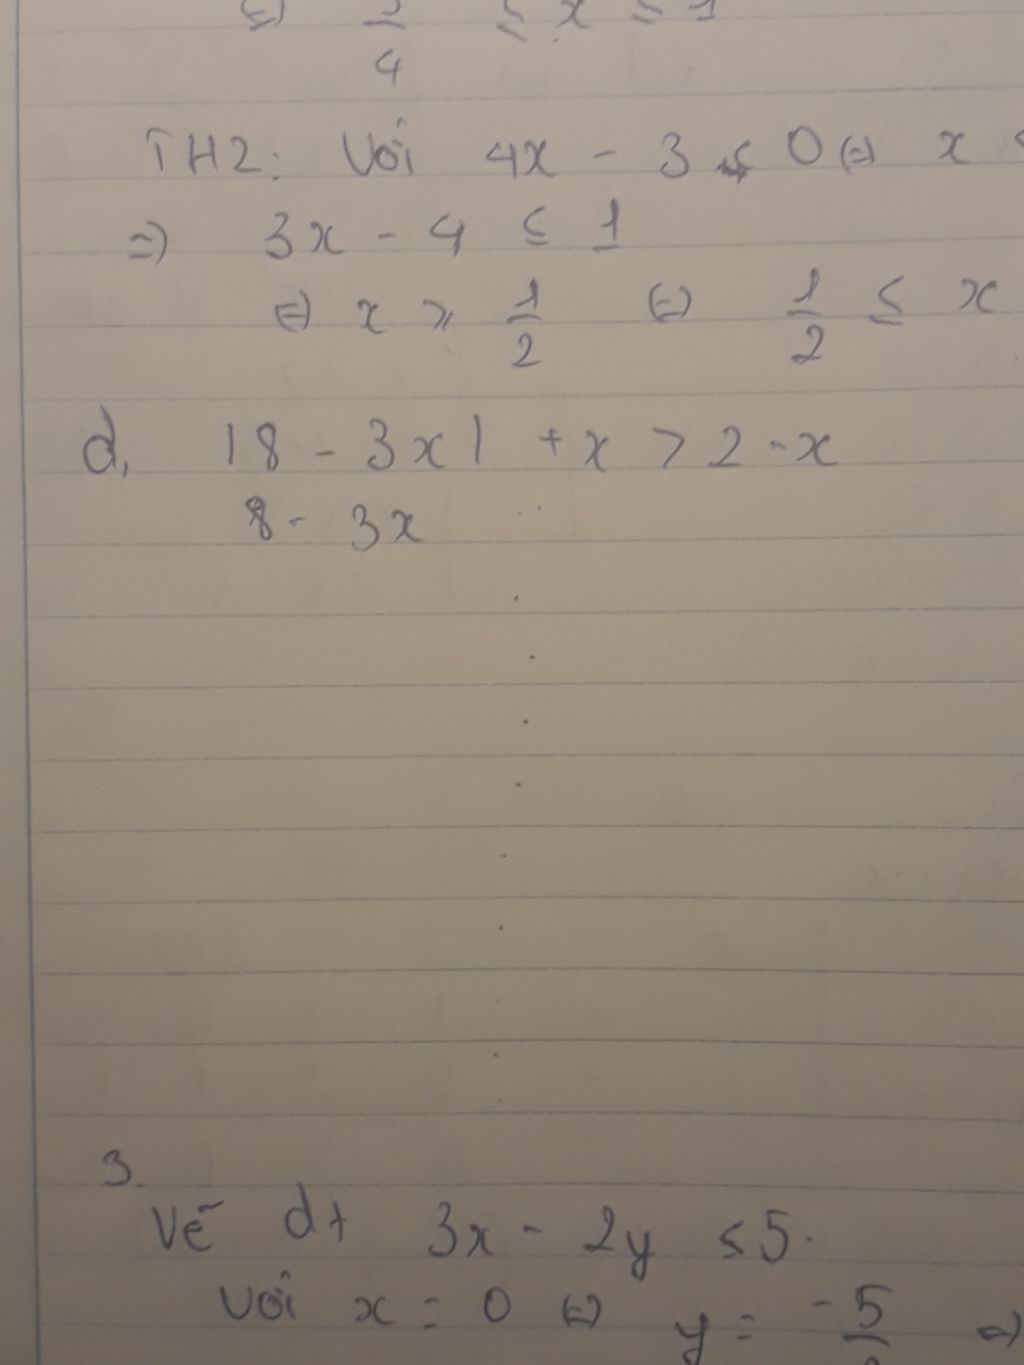 ⇔ 3/4 ≤ x ≤ 1
TH2: Với 4x - 3 ≤ 0 ⇔ x <
⇒ 3x - 4 ≤ 1
⇔ x ≥ 1/2 ⇔ 1/2 ≤ x
d, |8 - 3x| + x > 2 - x
8 - 3x
3.
Vẽ dt 3x - 2y ≤ 5.
Với x = 0 ⇔ y = -5/2 ⇒